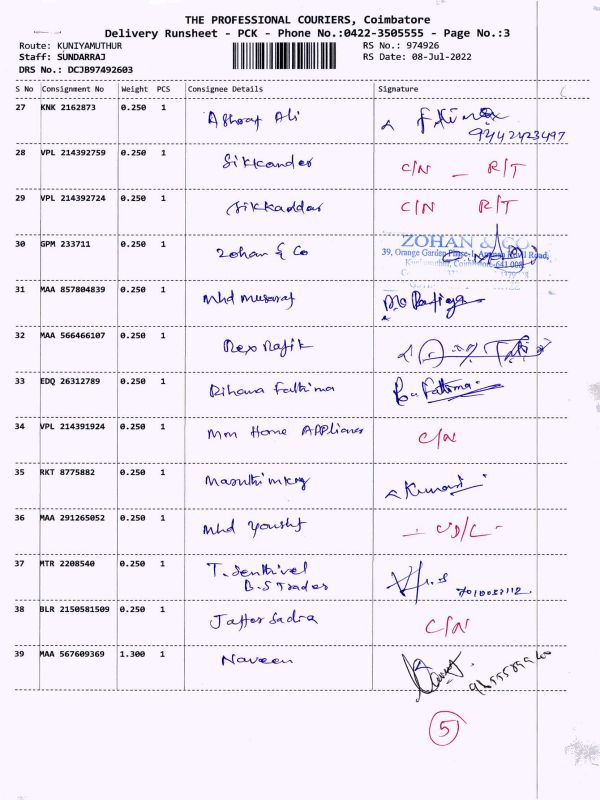 THE PROFESSIONAL COURIERS, Coimbatore
Delivery Runsheet - PCK - Phone No.:0422-3505555 - Page No.:3
Route: KUNIYAMUTHUR RS No.: 974926
Staff: SUNDARRAJ RS Date: 08-Jul-2022
DRS No.: DCJB97492603
S No Consignment No Weight PCS Consignee Details Signature
27 KNK 2162873 0.250 1 Ashraf Ali
9442423497
28 VPL 214392759 0.250 1 Sikkander C/N - R/T
29 VPL 214392724 0.250 1 Sikkaddar C/N R/T
30 GPM 233711 0.250 1 Zohan & Co ZOHAN & CO
39, Orange Garden Phase-1, Road,
31 MAA 857804839 0.250 1 Mhd musaraf
32 MAA 566466107 0.250 1 Rex Rafik
33 EDQ 26312789 0.250 1 Rihana Fathima Fathima
34 VPL 214391924 0.250 1 Mm Home APPliances C/N
35 RKT 8775882 0.250 1 Kumar
36 MAA 291265052 0.250 1 Mhd Yousuf
37 MTR 2208540 0.250 1 T. Senthivel
B.S Trader
38 BLR 2150581509 0.250 1 Jaffer Sadra C/N
39 MAA 567609369 1.300 1 Naveen
5